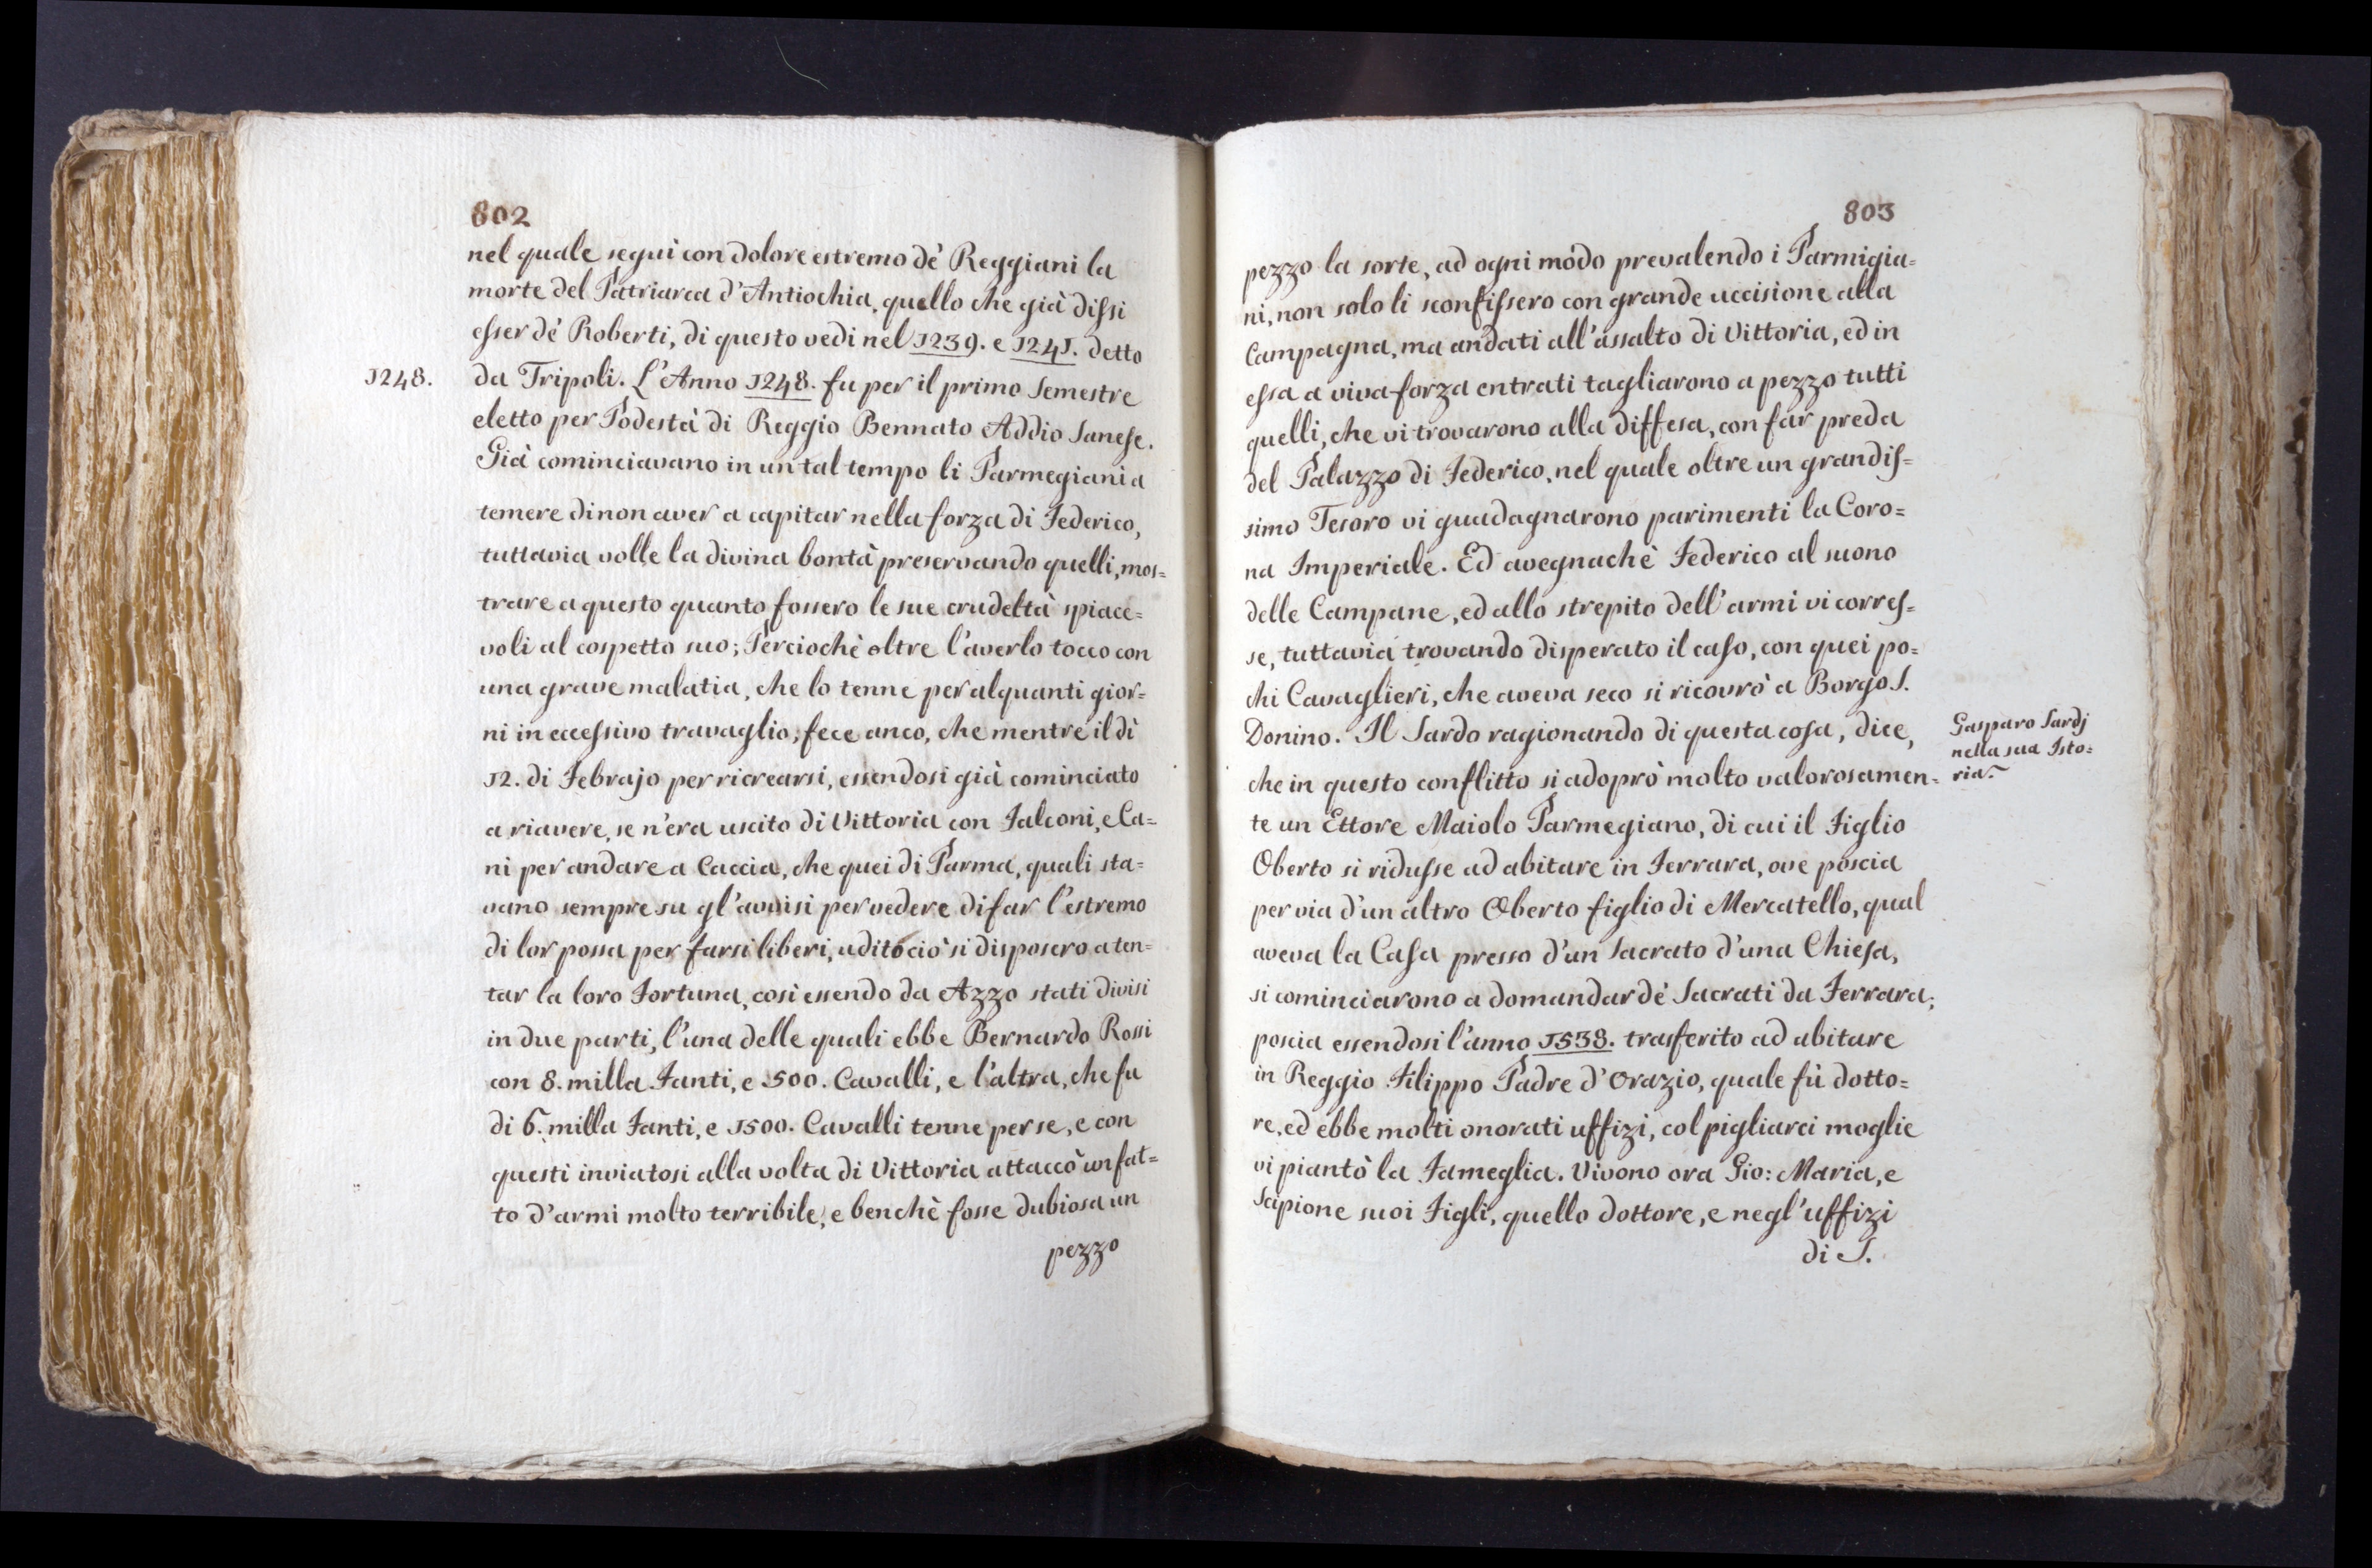 802
nel quale seguì con dolore estremo dè Reggiani la
morte del Patriarca d'Antiochia, quello che già dissi
esser dè Roberti, di questo vedi nel 1239. e 1241. detto
1248.
da Tripoli. L'Anno 1248. fu per il primo Semestre
eletto per Podestà di Reggio Bennato Addio Sanese.
Già cominciavano in un tal tempo li Parmegiani a
temere di non aver a capitar nella forza di Federico,
tuttavia volle la divina bontà preservando quelli, mos=
trare a questo quanto fossero le sue crudeltà spiace=
voli al cospetto suo; Perciochè oltre l'averlo tocco con
una grave malatia, che lo tenne per alquanti gior=
ni in eccessivo travaglio; fece anco, che mentre il dì
12. di Febrajo per ricrearsi, essendosi già cominciato
a riavere, se n'era uscito di Vittoria con Falconi, e Ca=
ni per andare a Caccia, che quei di Parma, quali sta=
vano sempre su gl'avvisi per vedere di far l'estremo
di lor possa per farsi liberi, udito ciò si disposero a ten=
tar la loro Fortuna, così essendo da Azzo stati divisi
in due parti, l'una delle quali ebbe Bernardo Rossi
con 8. milla Fanti, e 500. Cavalli, e l'altra, che fu
di 6. milla Fanti, e 1500. Cavalli tenne per se, e con
questi inviatosi alla volta di Vittoria attaccò un fat=
to d'armi molto terribile, e benchè fosse dubiosa un
pezzo
803
pezzo la sorte, ad ogni módo prevalendo i Parmigia=
ni, non solo li sconfissero con grande uccisione alla
Campagna, ma andati all'assalto di Vittoria, ed in
essa a viva forza entrati tagliarono a pezzo tutti
quelli, che vi trovarono alla diffesa, con far preda
del Palazzo di Federico, nel quale oltre un grandis=
simo Tesoro vi guadagnarono parimenti la Coro=
na Imperiale. Ed avegnachè Federico al suono
delle Campane, ed allo strepito dell'armi vi corres=
se, tuttavia trovando disperato il caso, con quei po=
chi Cavaglieri, che aveva seco si ricovrò a Borgo S.
Donino. Il Sardo ragionando di questa cosa, dice,
che in questo conflitto si adoprò molto valorosamen=
Gasparo Sardj
nella sua Isto=
ria.
te un Ettore Maiolo Parmegiano, di cui il Figlio
Oberto si ridusse ad abitare in Ferrara, ove poscia
per via d'un altro Oberto figlio di Mercatello, qual
aveva la Casa presso d'un Sacrato d'una Chiesa,
si cominciarono a domandar dè Sacrati da Ferrara;
poscia essendosi l'anno 1538. trasferito ad abitare
in Reggio Filippo Padre d'Orazio, quale fù dotto=
re, ed ebbe molti onorati uffizi, col pigliarci moglie
vi piantò la Fameglia. Vivono ora Gio: Maria, e
Scipione suoi Figli, quello dottore, e negl'uffizi
di S.